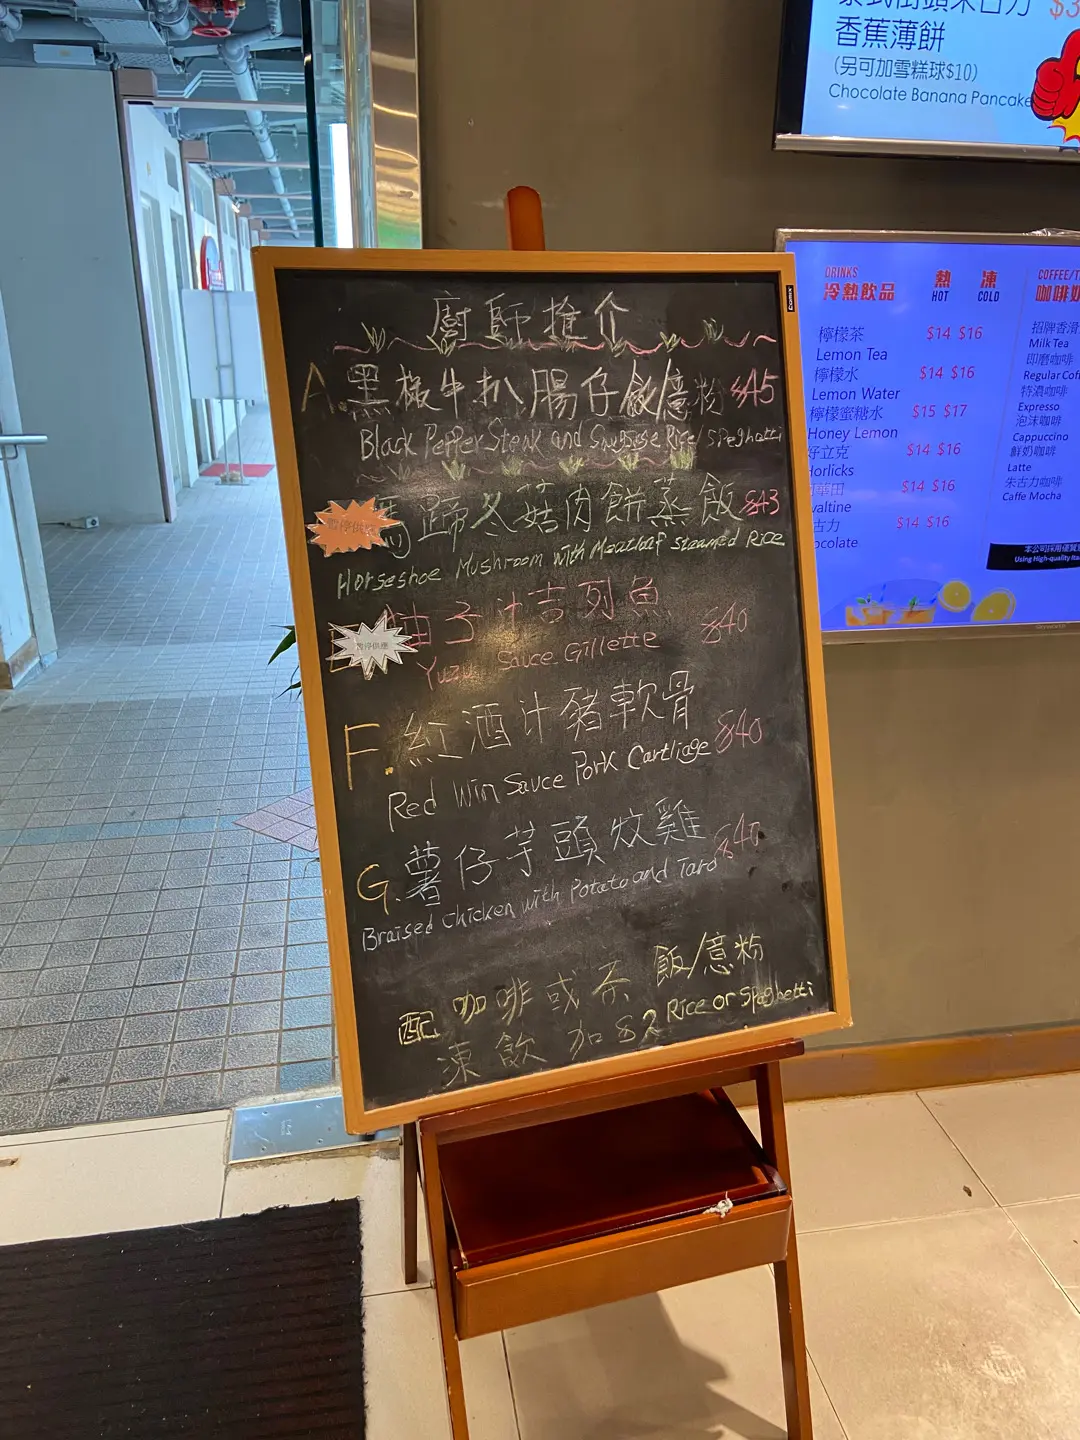 廚師推介
A.黑椒牛扒腸仔飯/意粉 $45
Black Pepper Steak and Sausage Rice/Spaghetti
暫停供應
馬蹄冬菇肉餅蒸飯 $43
Horseshoe Mushroom with Meatloaf Steamed Rice
暫停供應
柚子汁吉列魚 $40
Yuzu Sauce Gillette
F.紅酒汁豬軟骨 $40
Red Win Sauce Pork Cartliage
G.薯仔芋頭炆雞 $40
Braised Chicken with Potato and Taro
配 咖啡或茶 飯/意粉
凍飲 加$2 Rice or Spaghetti
Comix
香蕉薄餅
(另可加雪糕球$10)
Chocolate Banana Pancake
DRINKS
冷熱飲品
熱 凍
HOT COLD
檸檬茶 $14 $16
Lemon Tea
檸檬水 $14 $16
Lemon Water
檸檬蜜糖水 $15 $17
Honey Lemon
好立克 $14 $16
Horlicks
$14 $16
valtine
古力 $14 $16
ocolate
COFFEE/T
咖啡奶
招牌香滑
Milk Tea
即磨咖啡
Regular Coff
特濃咖啡
Expresso
泡沫咖啡
Cappuccino
鮮奶咖啡
Latte
朱古力咖啡
Caffe Mocha
本公司採用優質
Using High-quality Ita